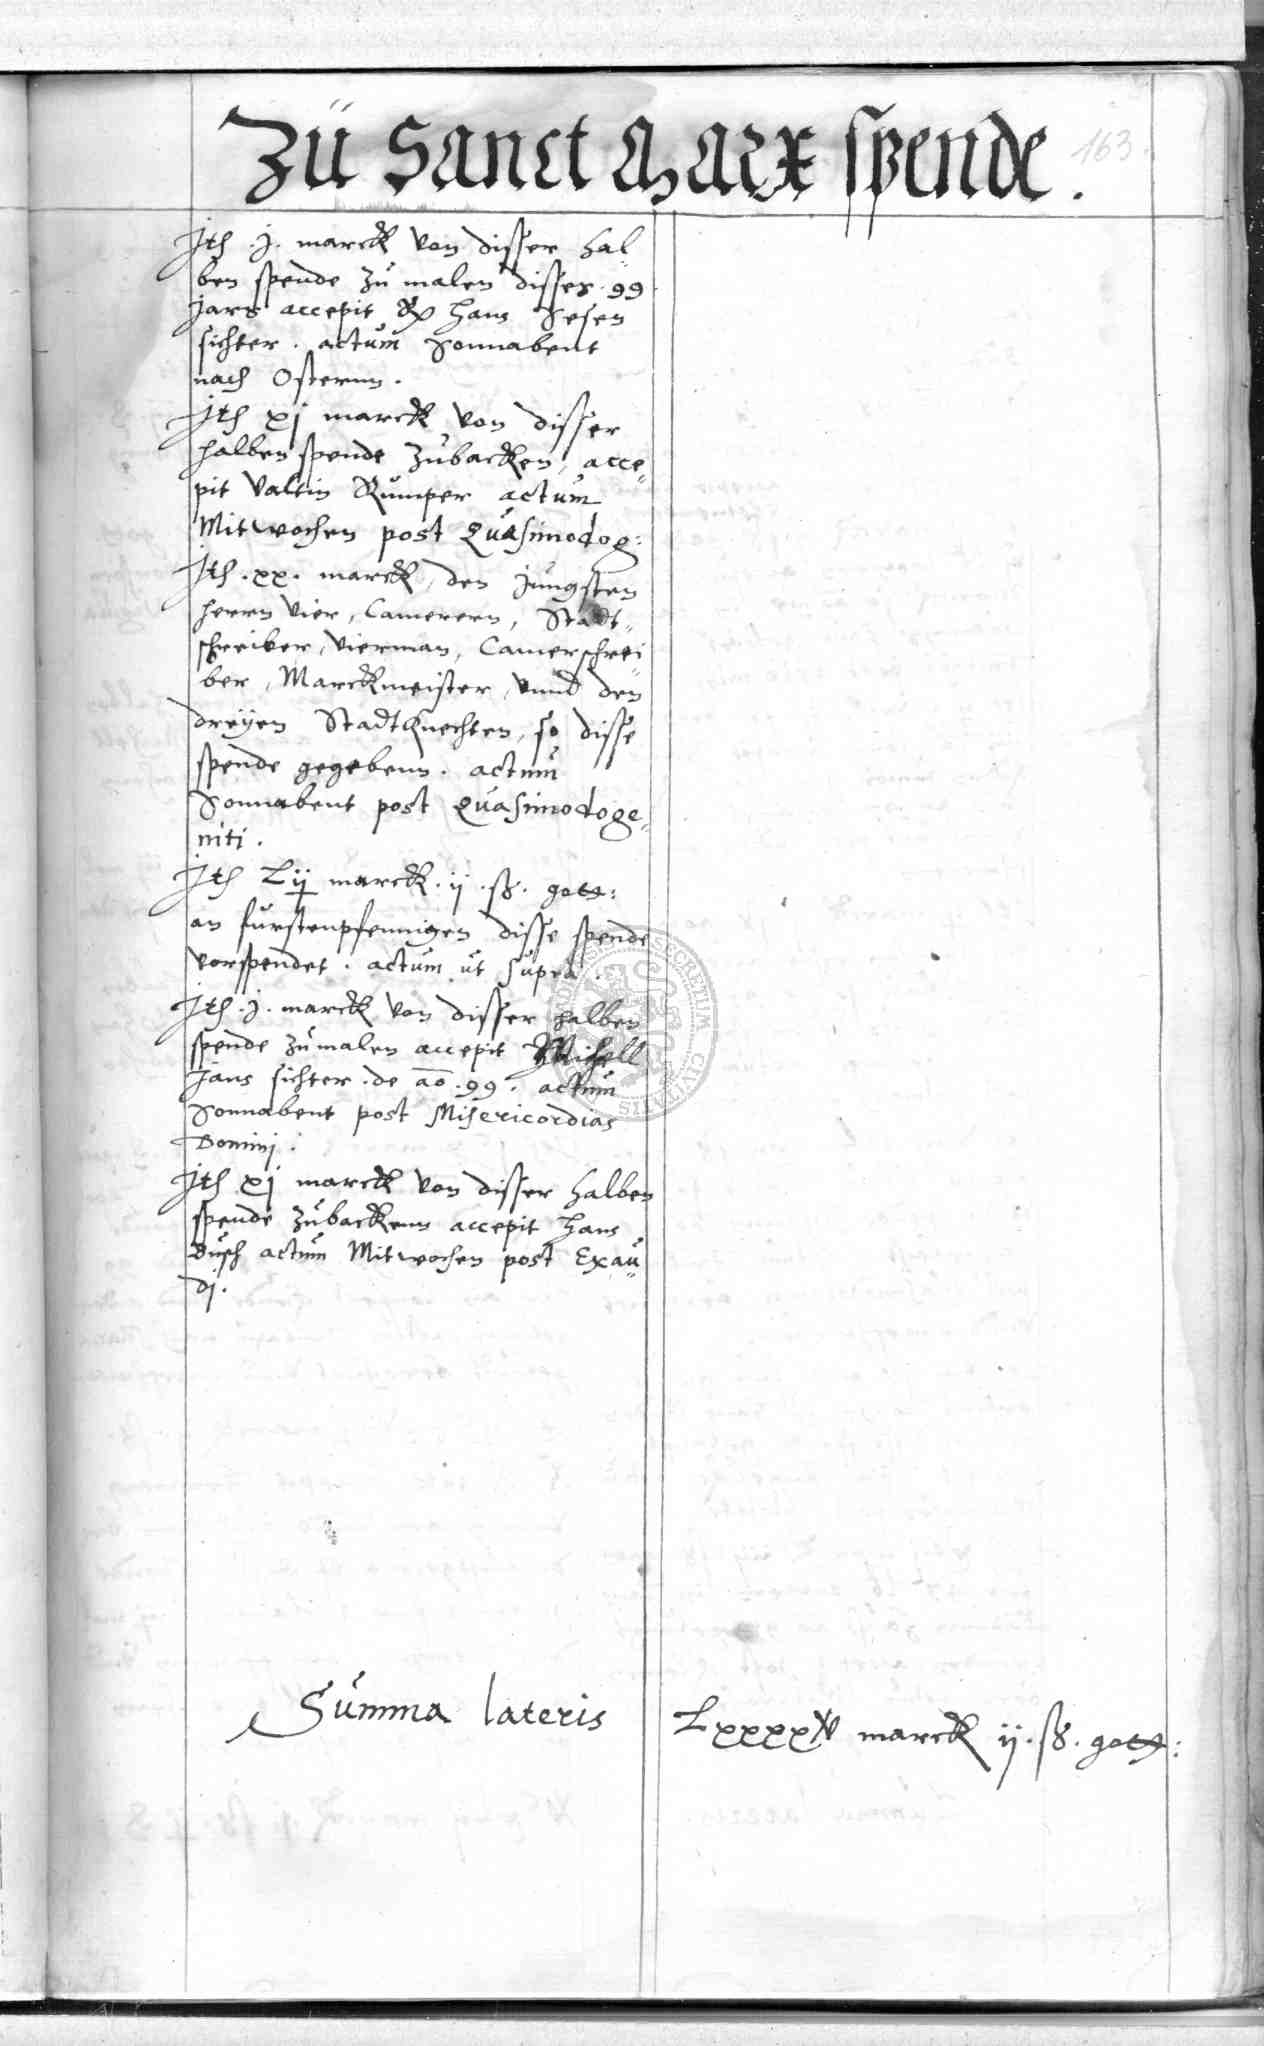 Zu Sanct Marx spende.
163
Ith .j. marck von disser hal„
ben spende zu malen disses .99
Jars accepit Hans Sesen
sichter. actum Sonnabent
nach Osternn.
Ith xj marck von disser
halben spende zubacken, acce„
pit Valtin Rumper actum
Mitwochen post Quasimodog:
Ith .xx. marck, den Jungsten
herrn vier, Camerern, Stadt„
schreiber, vierman, Camerschrei
ber, Marckmeister, vnnd den
dreyen Stadtknechten, so disse
spende gegebenn. actum
Sonnabent post Quasimodoge„
niti.
Ith Lij marck .ij .ß. gott:
an furstenpfennigen disse spende
vorspendet. actum ut supra.
Ith .j. marck von disser halben
spende zumalen accepit Michell
Jans sichter .de ao .99. actum
Sonnabent post Misericordias
Domini.
Ith xj marck von disser halben
spende zubackenn accepit Hans
Busch actum Mitwochen post Exau„
dj.
Summa lateris Lxxxxv marck ij .ß. gott:
SECRETUM CIVITATIS